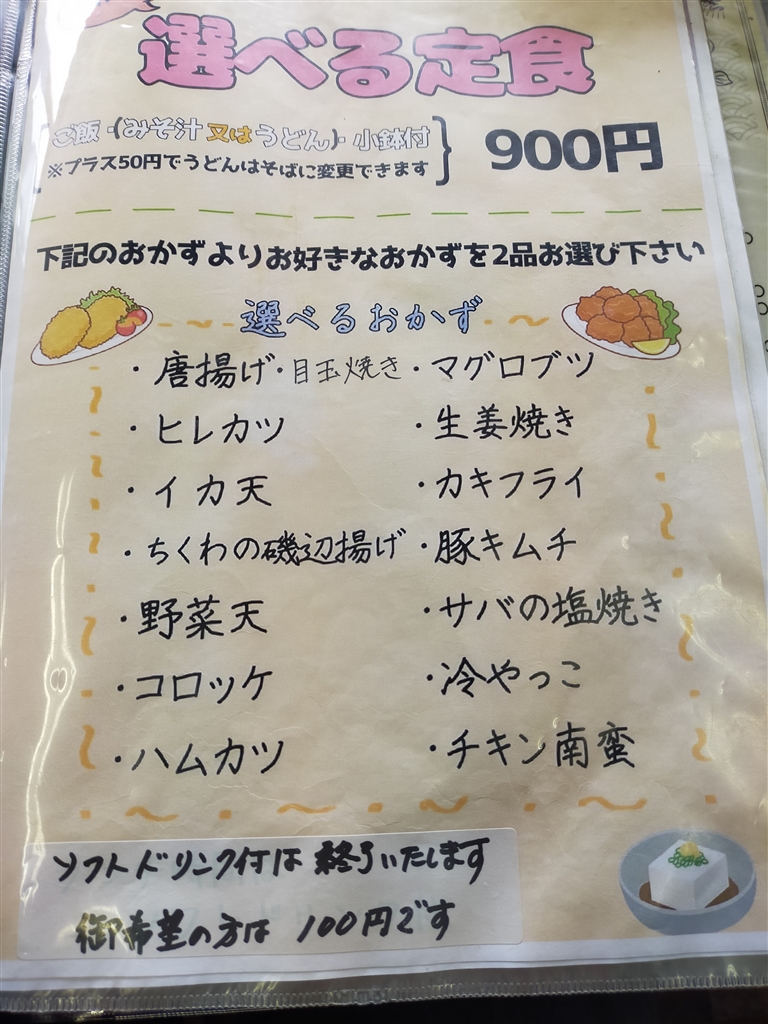 選べる定食
ご飯・(みそ汁又はうどん)・小鉢付
※プラス50円でうどんはそばに変更できます
900円
下記のおかずよりお好きなおかずを2品お選び下さい
選べるおかず
・唐揚げ・目玉焼き・マグロブツ
・ヒレカツ ・生姜焼き
・イカ天 ・カキフライ
・ちくわの磯辺揚げ・豚キムチ
・野菜天 ・サバの塩焼き
・コロッケ ・冷やっこ
・ハムカツ ・チキン南蛮
ソフトドリンク付は終了いたします
御希望の方は100円です